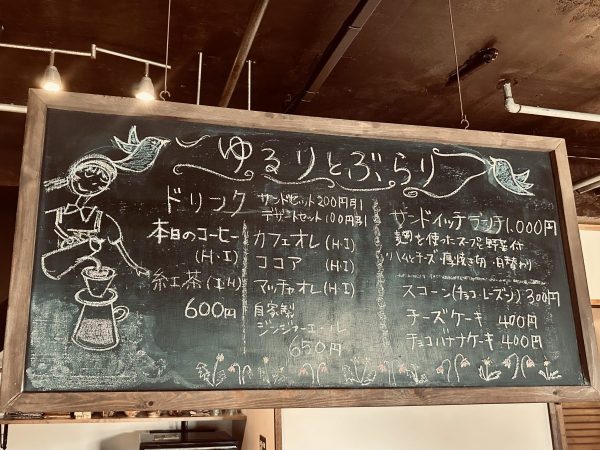 ゆるりとぶらり
ドリンク
サンドセット200円引
デザートセット100円引
本日のコーヒー
(H・I)
紅茶(I・H)
600円
カフェオレ(H・I)
ココア(H・I)
マッチャオレ(H・I)
自家製
ジンジャーエール
650円
サンドイッチランチ1,000円
麹を使ったスープと野菜付
ハムとチーズ・厚焼き卵・日替わり
スコーン(チョコ・レーズン)300円
チーズケーキ 400円
チョコバナナケーキ 400円